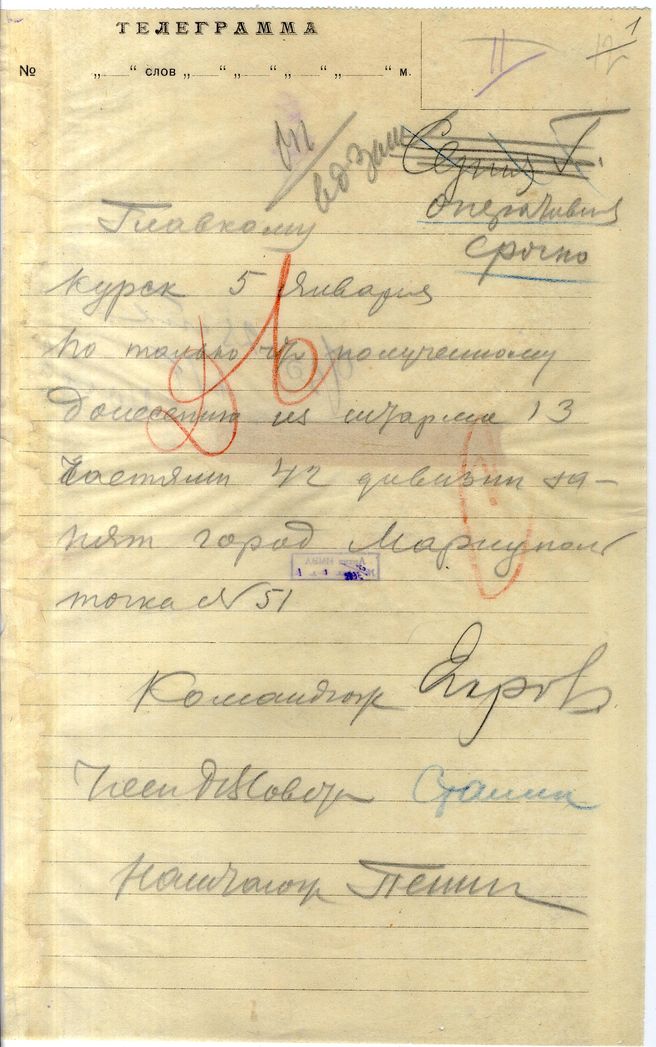 ТЕЛЕГРАММА
1
№ „ “ слов „ “ „ “ „ “ „ “ м.
Серия Г.
оперативная
срочно
Главкому
Курск 5 января
по только что полученному
донесению из штарма 13
частями 42 дивизии за-
нят город Мариуполь
точка № 51
Командюж Егоров
Член РВСовета Сталин
Наштаюж Петин